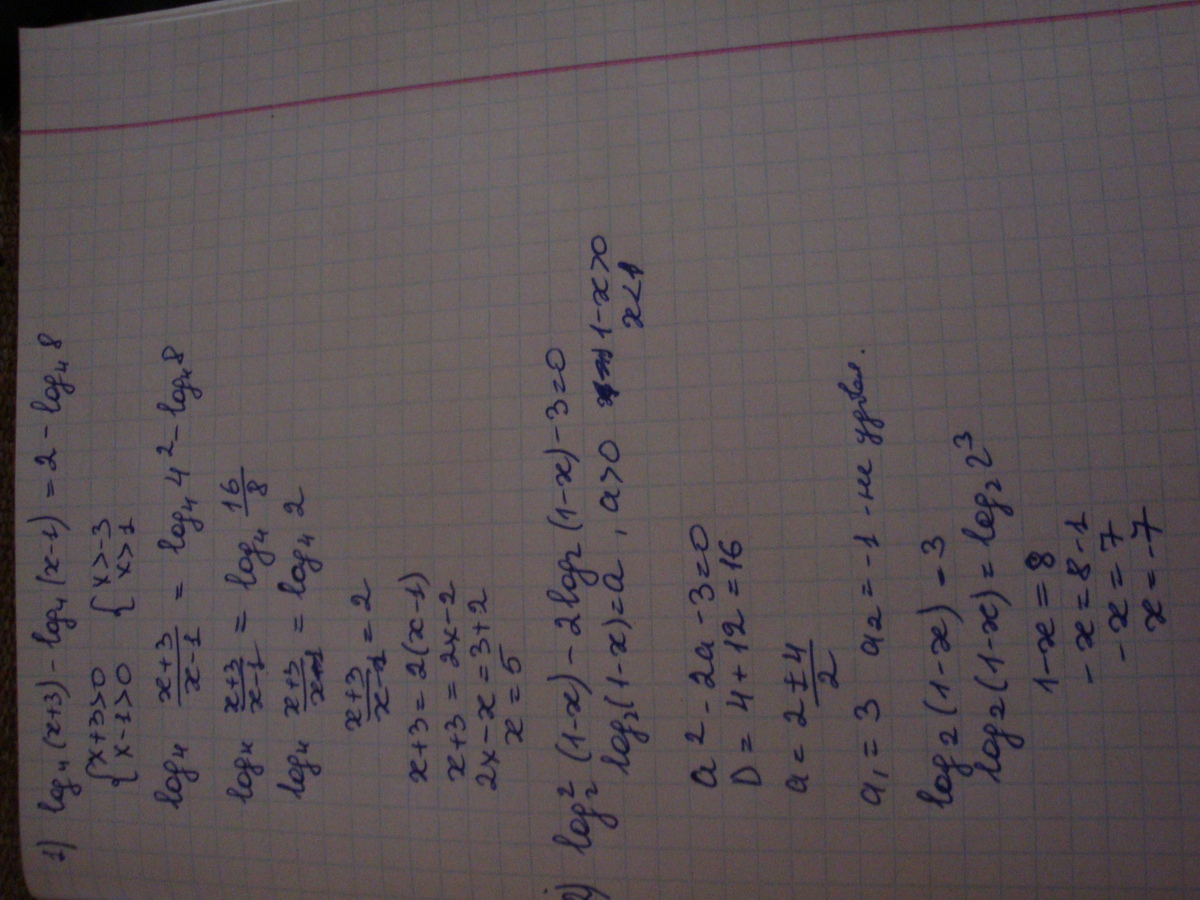 1) log₄(x+3) - log₄(x-1) = 2 - log₄8
{x+3>0 {x>-3
{x-1>0 {x>1
log₄ (x+3)/(x-1) = log₄4² - log₄8
log₄ (x+3)/(x-1) = log₄ 16/8
log₄ (x+3)/(x-1) = log₄ 2
(x+3)/(x-1) = 2
x+3 = 2(x-1)
x+3 = 2x-2
2x-x = 3+2
x = 5
2) log₂²(1-x) - 2log₂(1-x) - 3 = 0
log₂(1-x) = a, a>0 1-x>0
x<1
a² - 2a - 3 = 0
D = 4+12 = 16
a = (2±4)/2
a₁ = 3 a₂ = -1 - не удовл.
log₂(1-x) = 3
log₂(1-x) = log₂2³
1-x = 8
-x = 8-1
-x = 7
x = -7